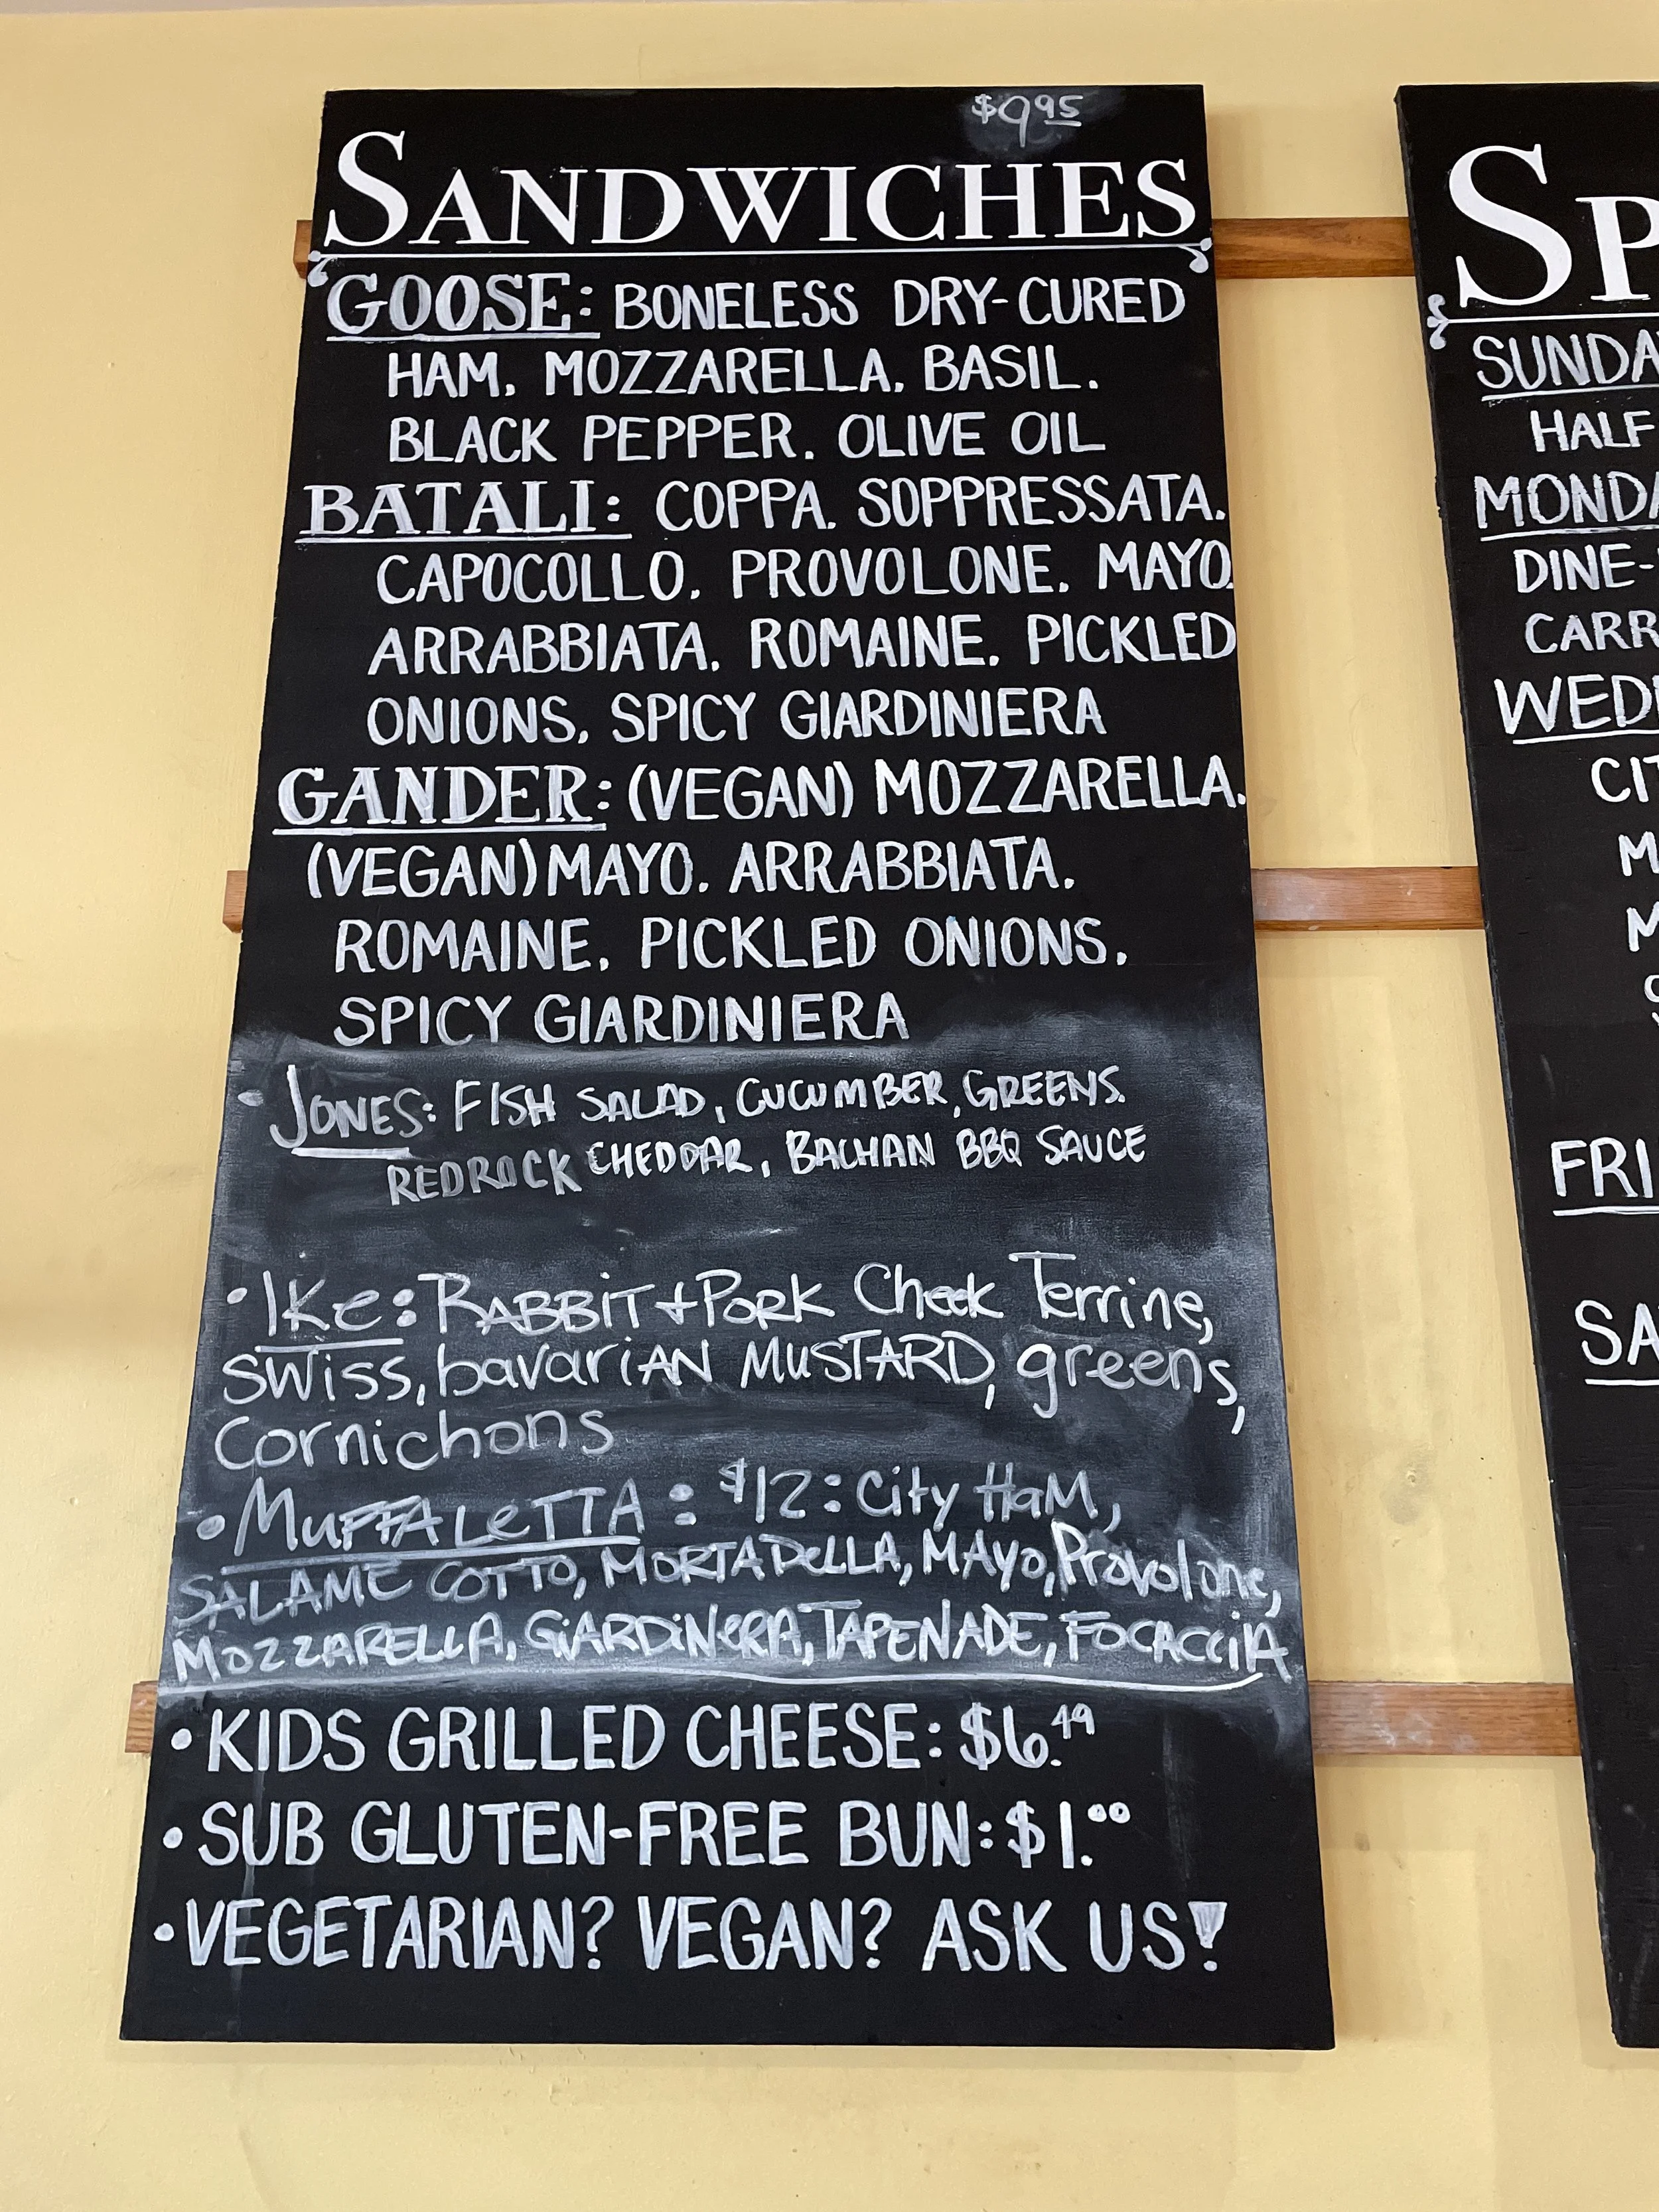 $9.95
SANDWICHES
GOOSE: BONELESS DRY-CURED
HAM, MOZZARELLA, BASIL,
BLACK PEPPER, OLIVE OIL
BATALI: COPPA, SOPPRESSATA,
CAPOCOLLO, PROVOLONE, MAYO,
ARRABBIATA, ROMAINE, PICKLED
ONIONS, SPICY GIARDINIERA
GANDER: (VEGAN) MOZZARELLA,
(VEGAN) MAYO, ARRABBIATA,
ROMAINE, PICKLED ONIONS,
SPICY GIARDINIERA
• JONES: FISH SALAD, CUCUMBER, GREENS.
REDROCK CHEDDAR, BACHAN BBQ SAUCE
• Ike: RABBIT + PORK Cheek Terrine,
SWiss, bavariAN MUSTARD, greens,
Cornichons
• MUFFALeTTA: $12: City HaM,
SALAME COTTO, MORTADeLLA, MAyo, Provolone,
MOZZARELLA, GiARDiNeRA, TAPENADE, FOCACCiA
• KIDS GRILLED CHEESE: $6.49
• SUB GLUTEN-FREE BUN: $1.00
• VEGETARIAN? VEGAN? ASK US!
SP
SUNDA
HALF
MONDA
DINE-
CARR
WED
CIT
M
M
FRI
SA